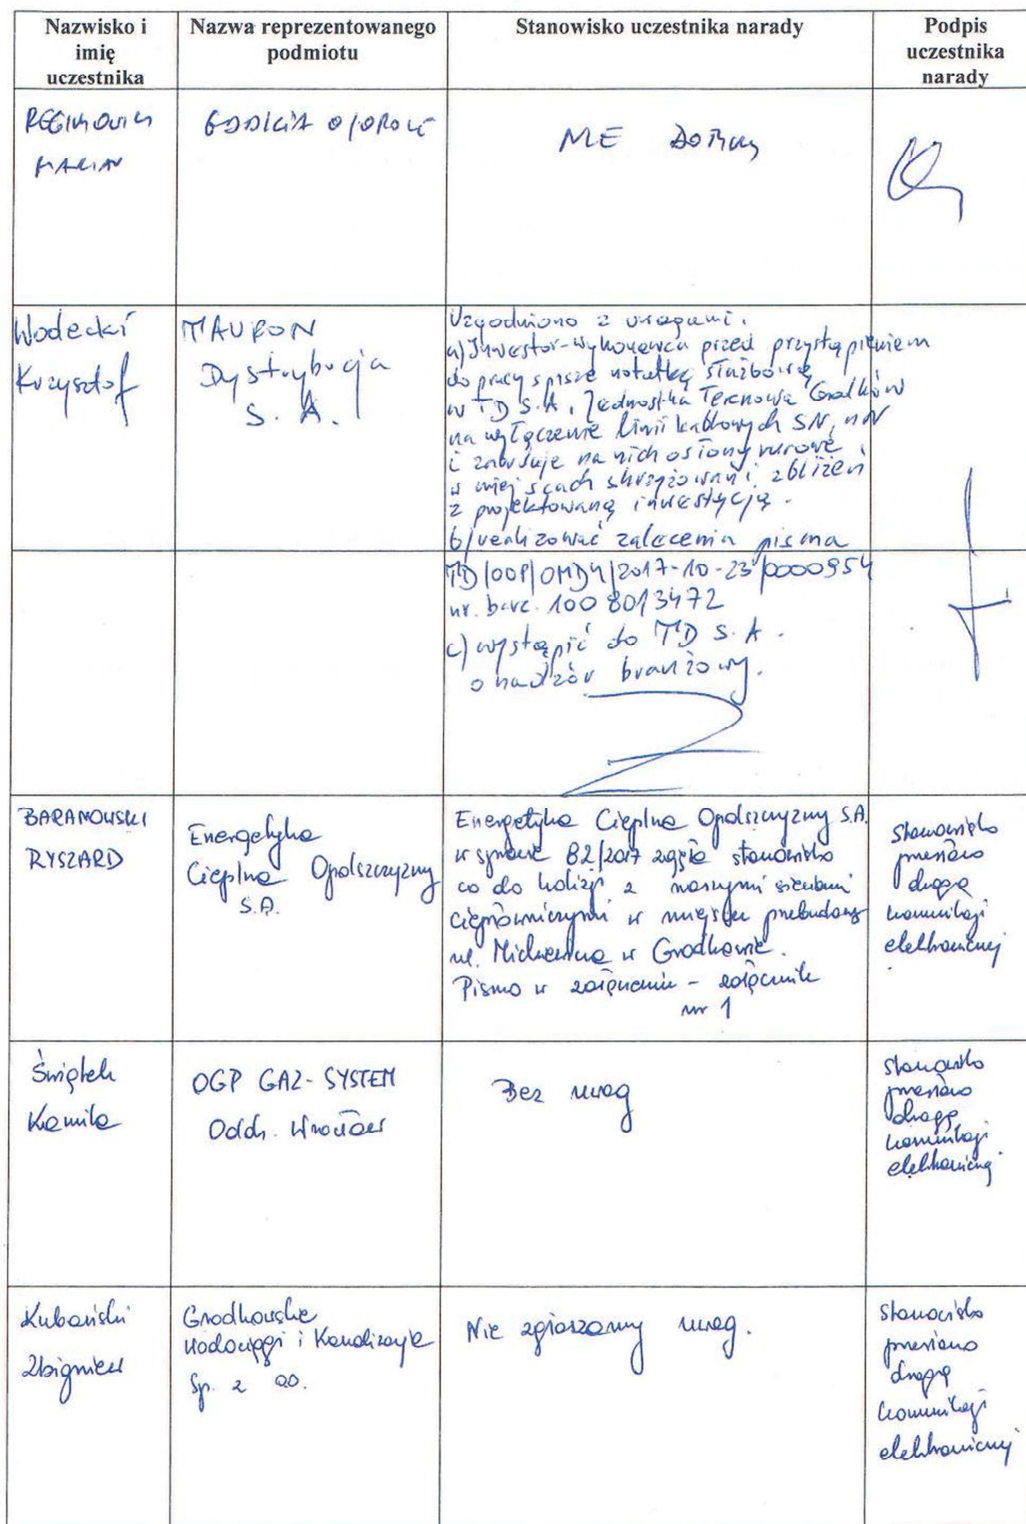 Nazwisko i
imię
uczestnika
Nazwa reprezentowanego
podmiotu
Stanowisko uczestnika narady
Podpis
uczestnika
narady
NIE DOTYCZY
Wodecki
Krzysztof
TAURON
Dystrybucja
S. A.
Uzgodniono z uwagami.
a) Inwestor-wykonawca przed przystąpieniem
do pracy spisze notatkę służbową
w TD S.A. Jednostka Terenowa Grodków
na wyłączenie linii kablowych SN, nN
i zabuduje na nich osłony rurowe
w miejscach skrzyżowań i zbliżeń
z projektowaną inwestycją.
b) realizować zalecenia pisma
TD/OOP/OMD4/2017-10-23/0000954
nr. barc. 1008013472
c) wystąpić do TD S.A.
o nadzór branżowy.
BARANOWSKI
RYSZARD
Energetyka
Cieplna Opolszczyzny
S.A.
Energetyka Cieplna Opolszczyzny S.A.
w sprawie 82/2017 stanowisko
co do kolizji z naszymi sieciami
ciepłowniczymi w miejscu przebudowy
ul. Mickiewicza w Grodkowie.
Pismo w załączeniu - załącznik
nr 1
stanowisko
przesłano
drogą
komunikacji
elektronicznej
Świątek
Kamila
OGP GAZ-SYSTEM
Oddz. Wrocław
Bez uwag
stanowisko
przesłano
drogą
komunikacji
elektroniczną
Kubański
Zbigniew
Grodkowskie
Wodociągi i Kanalizacje
Sp. z o.o.
Nie zgłaszamy uwag.
stanowisko
przesłano
drogą
komunikacji
elektronicznej